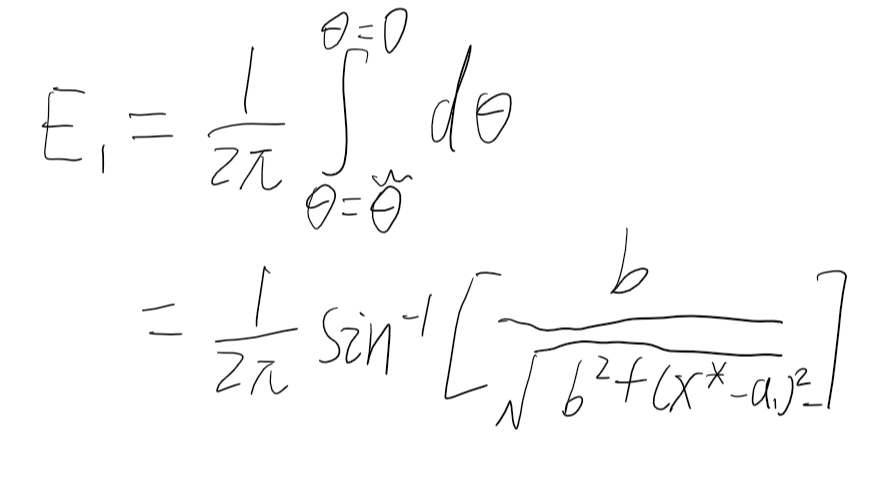 E₁ = \frac{1}{2π} \int_{θ=\tilde{θ}}^{θ=0} dθ
= \frac{1}{2π} sin^{-1} [ \frac{b}{\sqrt{b^2+(x^*-a_1)^2}} ]